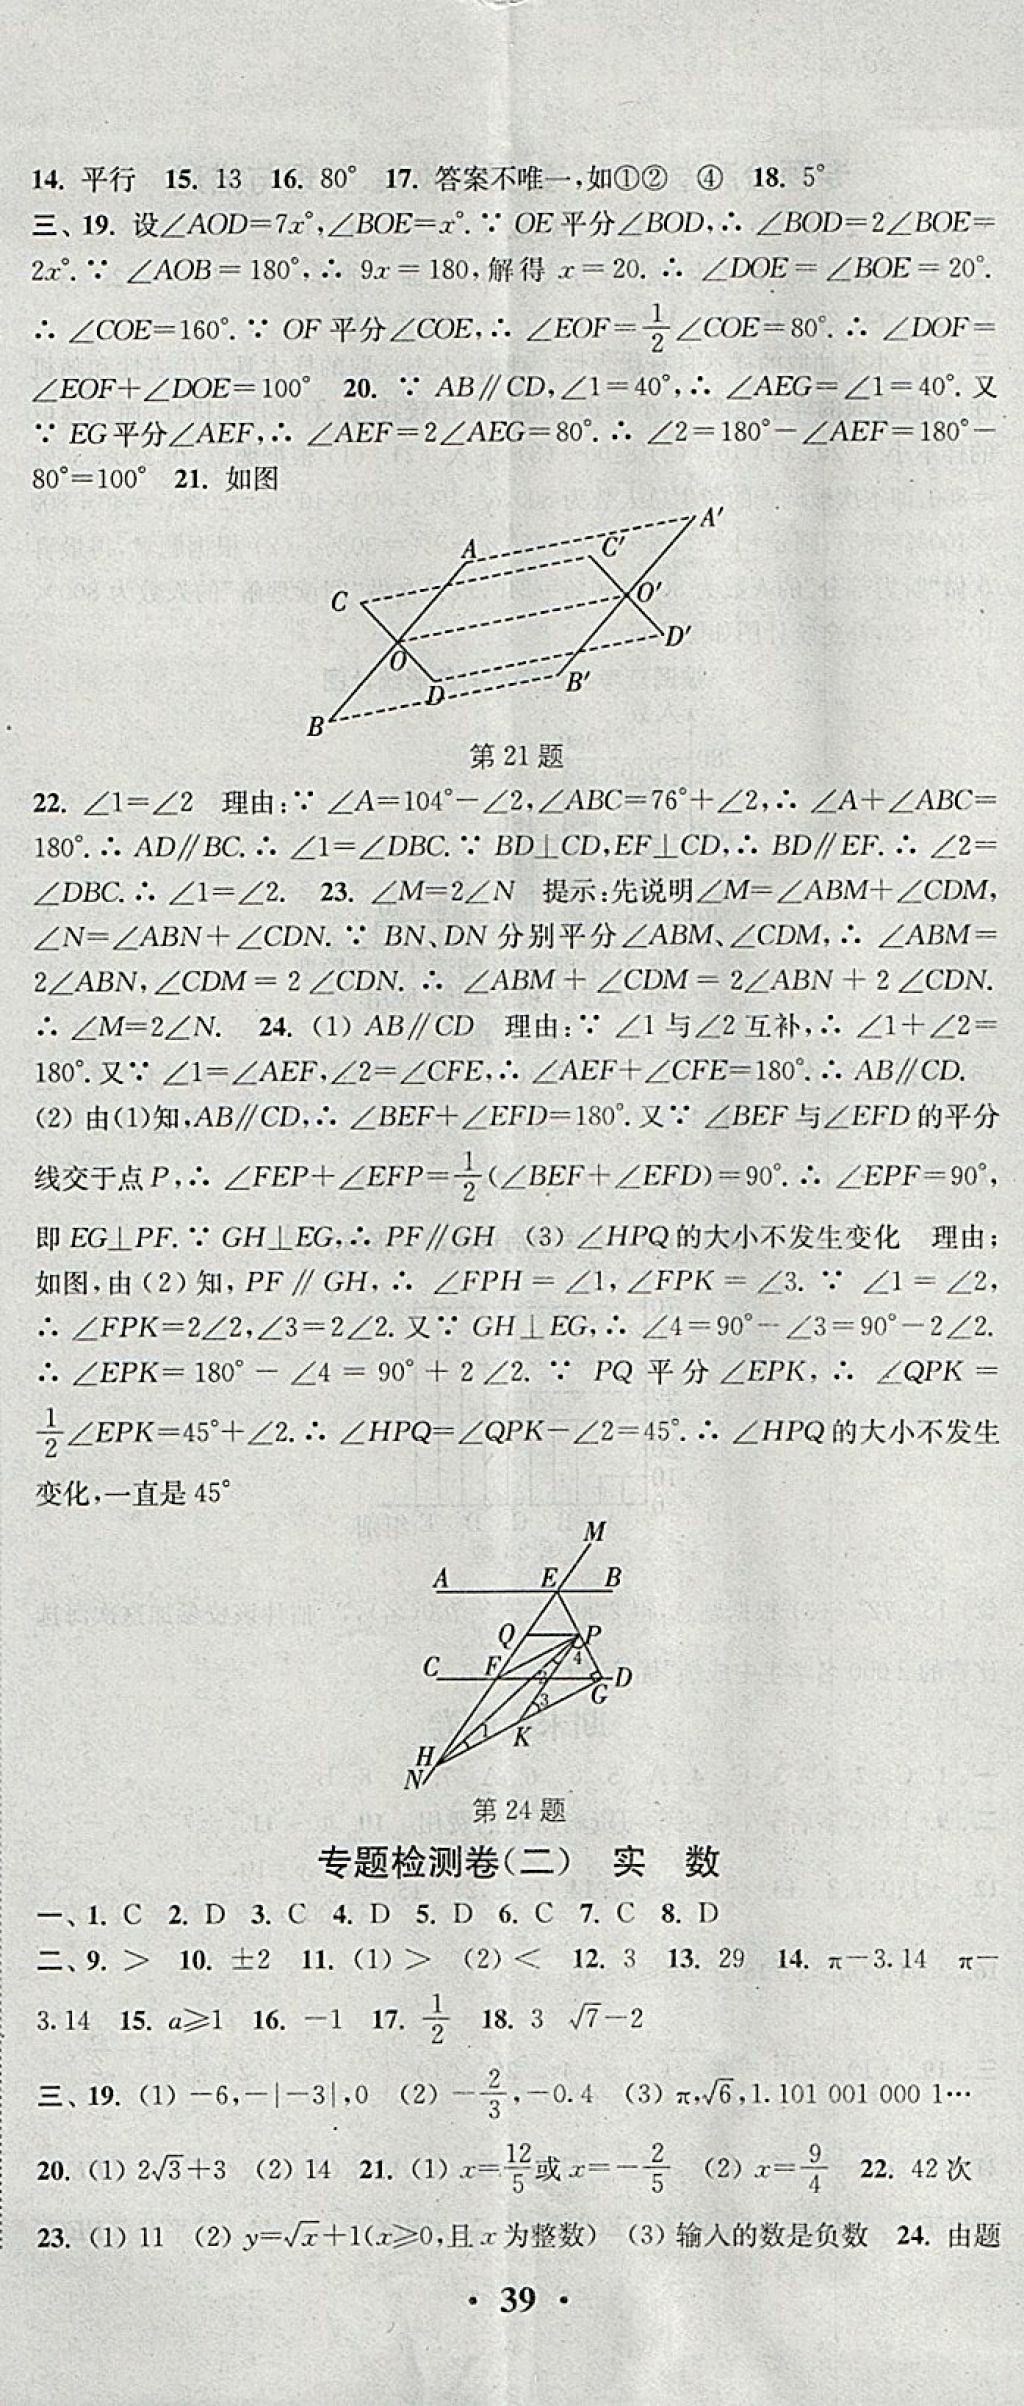 14. 平行　15. 13　16. 80°　17. 答案不唯一,如①②　④　18. 5°
三、19. 设∠AOD=7x°,∠BOE=x°.∵ OE平分∠BOD,∴ ∠BOD=2∠BOE=
2x°.∵ ∠AOB=180°,∴ 9x=180,解得 x=20. ∴ ∠DOE=∠BOE=20°.
∴ ∠COE=160°.∵ OF 平分∠COE,∴ ∠EOF=1/2∠COE=80°.∴ ∠DOF=
∠EOF+∠DOE=100°　20. ∵ AB∥CD,∠1=40°,∴ ∠AEG=∠1=40°.又
∵ EG平分∠AEF,∴ ∠AEF=2∠AEG=80°.∴ ∠2=180°-∠AEF=180°-
80°=100°　21. 如图
A'
A
C'
C
O'
O
D'
D
B'
B
第21题
22. ∠1=∠2　理由:∵ ∠A=104°-∠2,∠ABC=76°+∠2,∴ ∠A+∠ABC=
180°.∴ AD∥BC.∴ ∠1=∠DBC.∵ BD⊥CD,EF⊥CD,∴ BD∥EF.∴ ∠2=
∠DBC.∴ ∠1=∠2.　23. ∠M=2∠N　提示:先说明∠M=∠ABM+∠CDM,
∠N=∠ABN+∠CDN.∵ BN、DN 分别平分∠ABM、∠CDM,∴ ∠ABM=
2∠ABN,∠CDM=2∠CDN. ∴ ∠ABM+∠CDM=2∠ABN+2∠CDN.
∴ ∠M=2∠N.　24. (1) AB∥CD　理由:∵ ∠1与∠2互补,∴ ∠1+∠2=
180°.又∵ ∠1=∠AEF,∠2=∠CFE,∴ ∠AEF+∠CFE=180°.∴ AB∥CD.
(2) 由(1)知,AB∥CD,∴ ∠BEF+∠EFD=180°.又∵ ∠BEF与∠EFD的平分
线交于点P,∴ ∠FEP+∠EFP=1/2(∠BEF+∠EFD)=90°.∴ ∠EPF=90°,
即EG⊥PF.∵ GH⊥EG,∴ PF∥GH　(3) ∠HPQ的大小不发生变化　理由:
如图,由(2)知,PF∥GH,∴ ∠FPH=∠1,∠FPK=∠3.∵ ∠1=∠2,
∴ ∠FPK=2∠2,∠3=2∠2.又∵ GH⊥EG,∴ ∠4=90°-∠3=90°-2∠2.
∴ ∠EPK=180°-∠4=90°+2∠2.∵ PQ 平分∠EPK,∴ ∠QPK=
1/2∠EPK=45°+∠2.∴ ∠HPQ=∠QPK-∠2=45°.∴ ∠HPQ的大小不发生
变化,一直是45°
M
A
E
B
Q
P
4
C
F
2
D
G
3
K
1
H
N
第24题
专题检测卷(二)　实　数
一、1. C　2. D　3. C　4. D　5. D　6. C　7. C　8. D
二、9. >　10. ±2　11. (1) >　(2) <　12. 3　13. 29　14. π-3.14　π-
3.14　15. a≥1　16. -1　17. 1/2　18. 3　√7-2
三、19. (1) -6,-|-3|,0　(2) -2/3,-0.4　(3) π,√6,1.101 001 000 1…
20. (1) 2√3+3　(2) 14　21. (1) x=12/5或x=-2/5　(2) x=9/4　22. 42次
23. (1) 11　(2) y=√x+1(x≥0,且x为整数)　(3) 输入的数是负数　24. 由题
· 39 ·